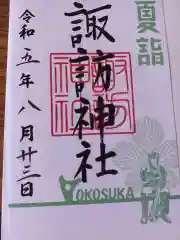 夏詣
諏訪神社
令和五年八月廿三日
YOKOSUKA